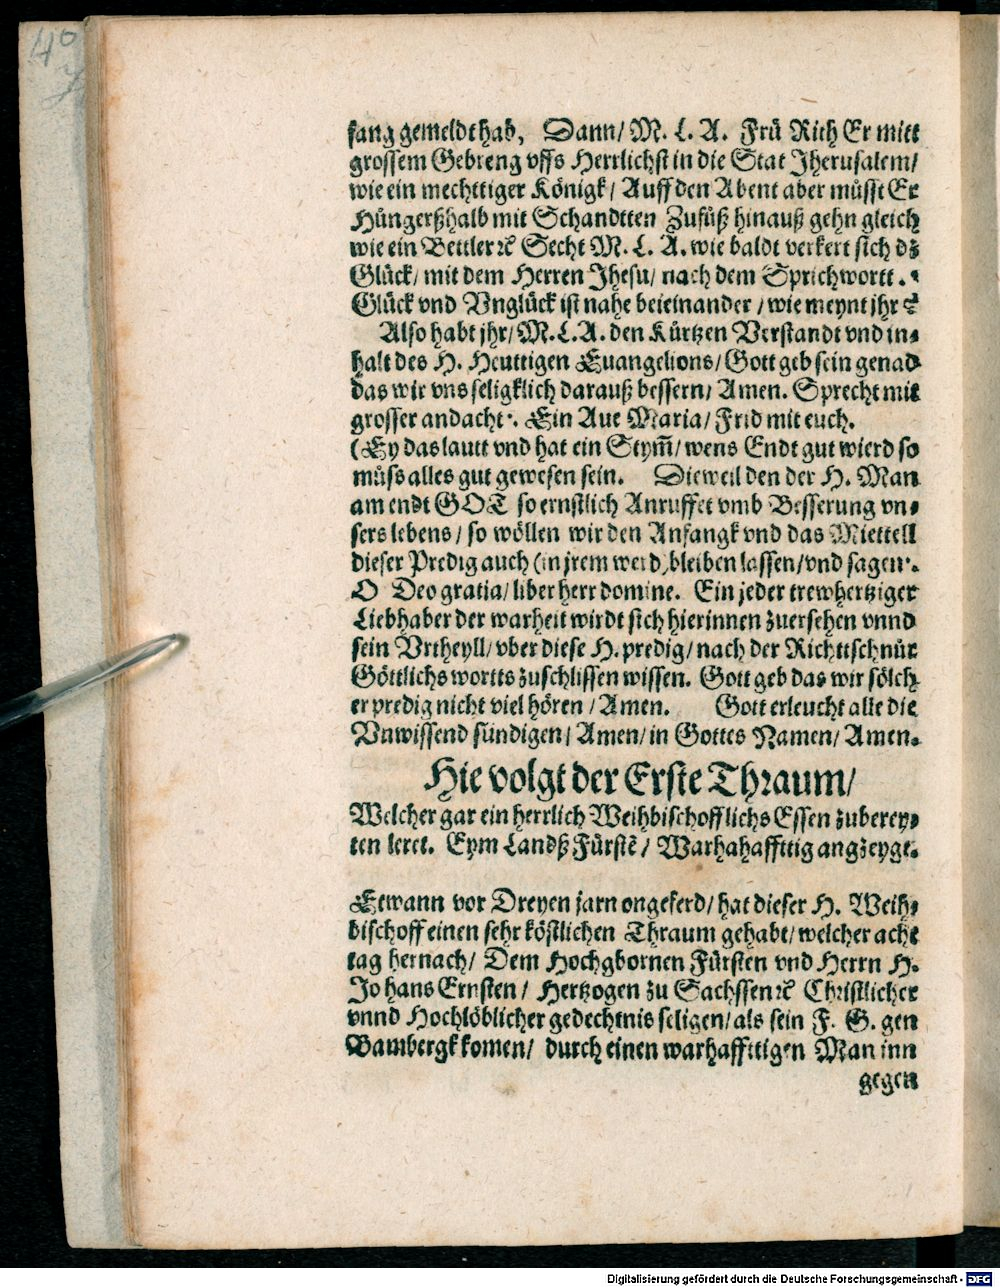 40
fang gemeldt hab, Dann/ M. L. A. Frü Rith Er mitt
grossem Gebreng vffs Herrlichst in die Stat Jherusalem/
wie ein mechttiger Königk/ Auff den Abent aber müsst Er
Hüngerßhalb mit Schandtten Zufüß hinauß gehn gleich
wie ein Bettler ꝛc̃ Secht M. L. A. wie baldt verkert sich dz
Glück/ mit dem Herren Jhesu/ nach dem Sprichwortt.
Glück vnd Vnglück ist nahe beieinander / wie meynt jhr ?
Also habt jhr/ M. L. A. den Kürtzen Verstandt vnd in⸗
halt des H. Heuttigen Euangelions/ Gott geb sein genad
das wir vns seligklich darauß bessern/ Amen. Sprecht mit
grosser andacht. Ein Aue Maria/ Frid mit euch.
(Ey das lautt vnd hat ein Stym̃/ wens Endt gut wierd so
müss alles gut gewesen sein. Dieweil den der H. Man
am endt GOT so ernstlich Anruffet vmb Besserung vn⸗
sers lebens/ so wöllen wir den Anfangk vnd das Miettell
dieser Predig auch (in jrem werd) bleiben lassen/ vnd sagen.
O Deo gratia/ liber herr domine. Ein jeder trewhertziger
Liebhaber der warheit wirdt sich hierinnen zuersehen vnnd
sein Vrtheyll/ vber diese H. predig/ nach der Richttschnür
Göttlichs wortts zuschlissen wissen. Gott geb das wir sölch
er predig nicht viel hören / Amen. Gott erleucht alle die
Vnwissend sündigen/ Amen/ in Gottes Namen/ Amen.
Hie volgt der Erste Thraum/
Welcher gar ein herrlich Weihbischofflichs Essen zuberey⸗
ten leret. Eym Landß Fürstẽ / Warhahaffttig angzeygt.
Etwann vor Dreyen jarn ongeferd/ hat dieser H. Weih⸗
bischoff einen sehr köstlichen Thraum gehabt/ welcher acht
tag hernach/ Dem Hochgbornen Fürsten vnd Herrn H.
Johans Ernsten/ Hertzogen zu Sachssen ꝛc̃ Christlicher
vnnd Hochlöblicher gedechtnis seligen/ als sein F. G. gen
Bambergk komen/ durch einen warhaffttigen Man inn
gegen
Digitalisierung gefördert durch die Deutsche Forschungsgemeinschaft - DFG